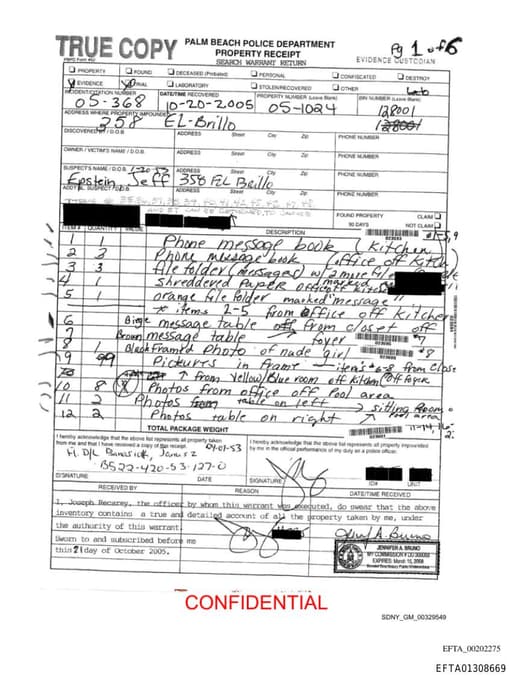 TRUE COPY
PBPD Form #62
PALM BEACH POLICE DEPARTMENT
PROPERTY RECEIPT
SEARCH WARRANT RETURN
Pg 1 of 6
EVIDENCE CUSTODIAN
PROPERTY FOUND DECEASED (Probated) PERSONAL CONFISCATED DESTROY
EVIDENCE TRIAL LABORATORY STOLEN/RECOVERED OTHER
INCIDENT/CITATION NUMBER DATE/TIME RECOVERED PROPERTY NUMBER (Leave Blank) BIN NUMBER (Leave Blank)
05-368 10-20-2005 05-1024 128001
ADDRESS WHERE PROPERTY IMPOUNDED
358 EL-Brillo
DISCOVERED BY / D.O.B. ADDRESS Street City Zip PHONE NUMBER
OWNER / VICTIM'S NAME / D.O.B. ADDRESS Street City Zip PHONE NUMBER
SUSPECT'S NAME / D.O.B. 1-20-53 ADDRESS Street City Zip PHONE NUMBER
Epstein Jeff 358 EL Brillo
ADDRESS Street City Zip PHONE NUMBER
FOUND PROPERTY CLAIM
90 DAYS NOT CLAIM
ITEM # QUANTITY VALUE DESCRIPTION
1 1 Phone message book (Kitchen
2 2 Phone message book (office off Kitchen
3 3 file folder (messages) w/ 2 more file
4 1 shreddered paper office off Kitchen
5 1 orange file folder marked "message"
* items 2-5 from office off Kitchen
6 Biege message table off from closet off
7 Brown message table foyer #7
8 1 Black Framed Photo of nude girl #8
9 99 Pictures in frame items 6-8 from Close
↑ from Yellow/Blue room off Kitchen off foyer
10 8 Photos from office off Pool area
11 2 Photos table on left > sitting Room
12 2 Photos table on right pool area
TOTAL PACKAGE WEIGHT
I hereby acknowledge that the above list represents all property taken
from me and that I have received a copy of this receipt.
I hereby acknowledge that the above list represents all property impounded
by me in the official performance of my duty as a police officer.
FL D/L Banasiak, Janusz
B522-420-53-127-0
SIGNATURE DATE SIGNATURE ID# UNIT
RECEIVED BY REASON DATE/TIME RECEIVED
I, Joseph Recarey, the officer by whom this warrant was executed, do swear that the above
inventory contains a true and detailed account of all the property taken by me, under
the authority of this warrant.
Sworn to and subscribed before me
this 21 day of October 2005.
Jennifer A. Bruno
JENNIFER A. BRUNO
EXPIRES: March 15, 2008
CONFIDENTIAL
SDNY_GM_00329549
EFTA_00202275
EFTA01308669